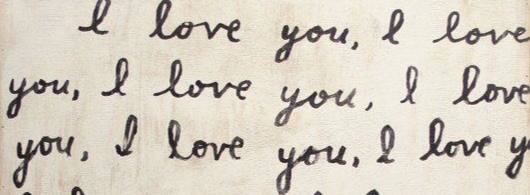 I love you, I love
you, I love you, I love
you, I love you, I love y